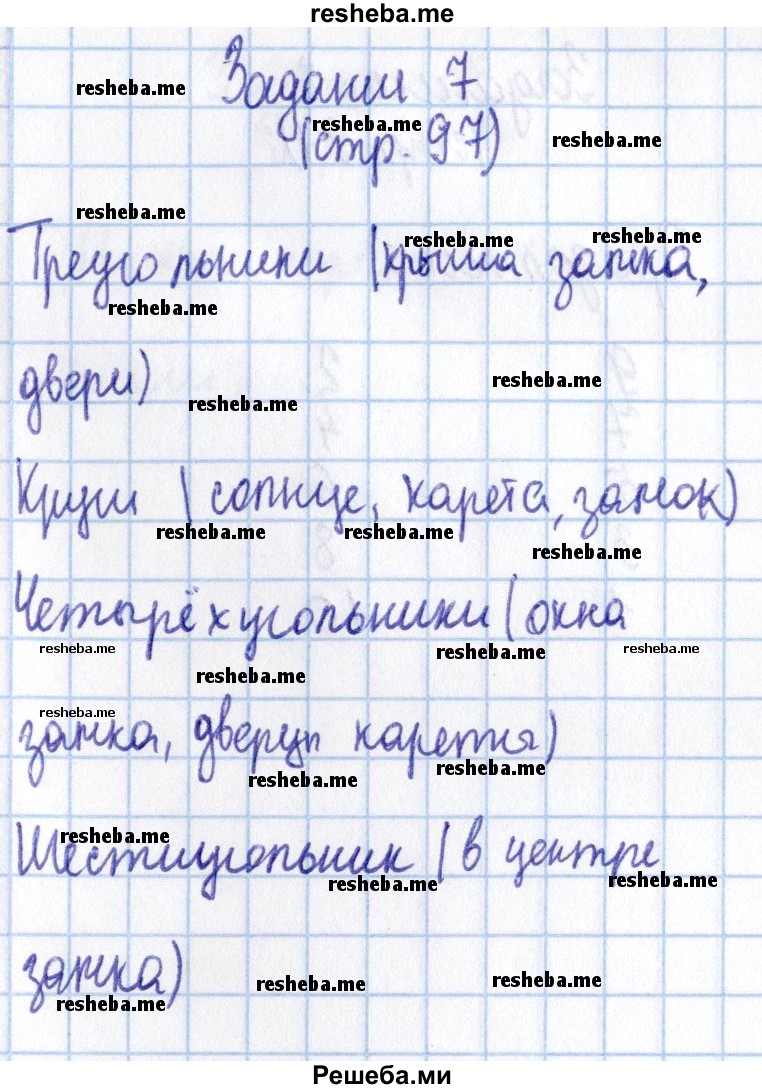 resheba.me
Задании 7
resheba.me
resheba.me
(стр. 97)
resheba.me
resheba.me
resheba.me
resheba.me
Треугольники (крыша замка,
resheba.me
resheba.me
двери)
resheba.me
Круги (солнце, карета, замок)
resheba.me
resheba.me
resheba.me
Четырёхугольники (окна
resheba.me
resheba.me
resheba.me
resheba.me
resheba.me
замка, двери кареты)
resheba.me
resheba.me
resheba.me
Шестиугольник (в центре
resheba.me
resheba.me
замка)
resheba.me
resheba.me
resheba.me
Решеба.ми